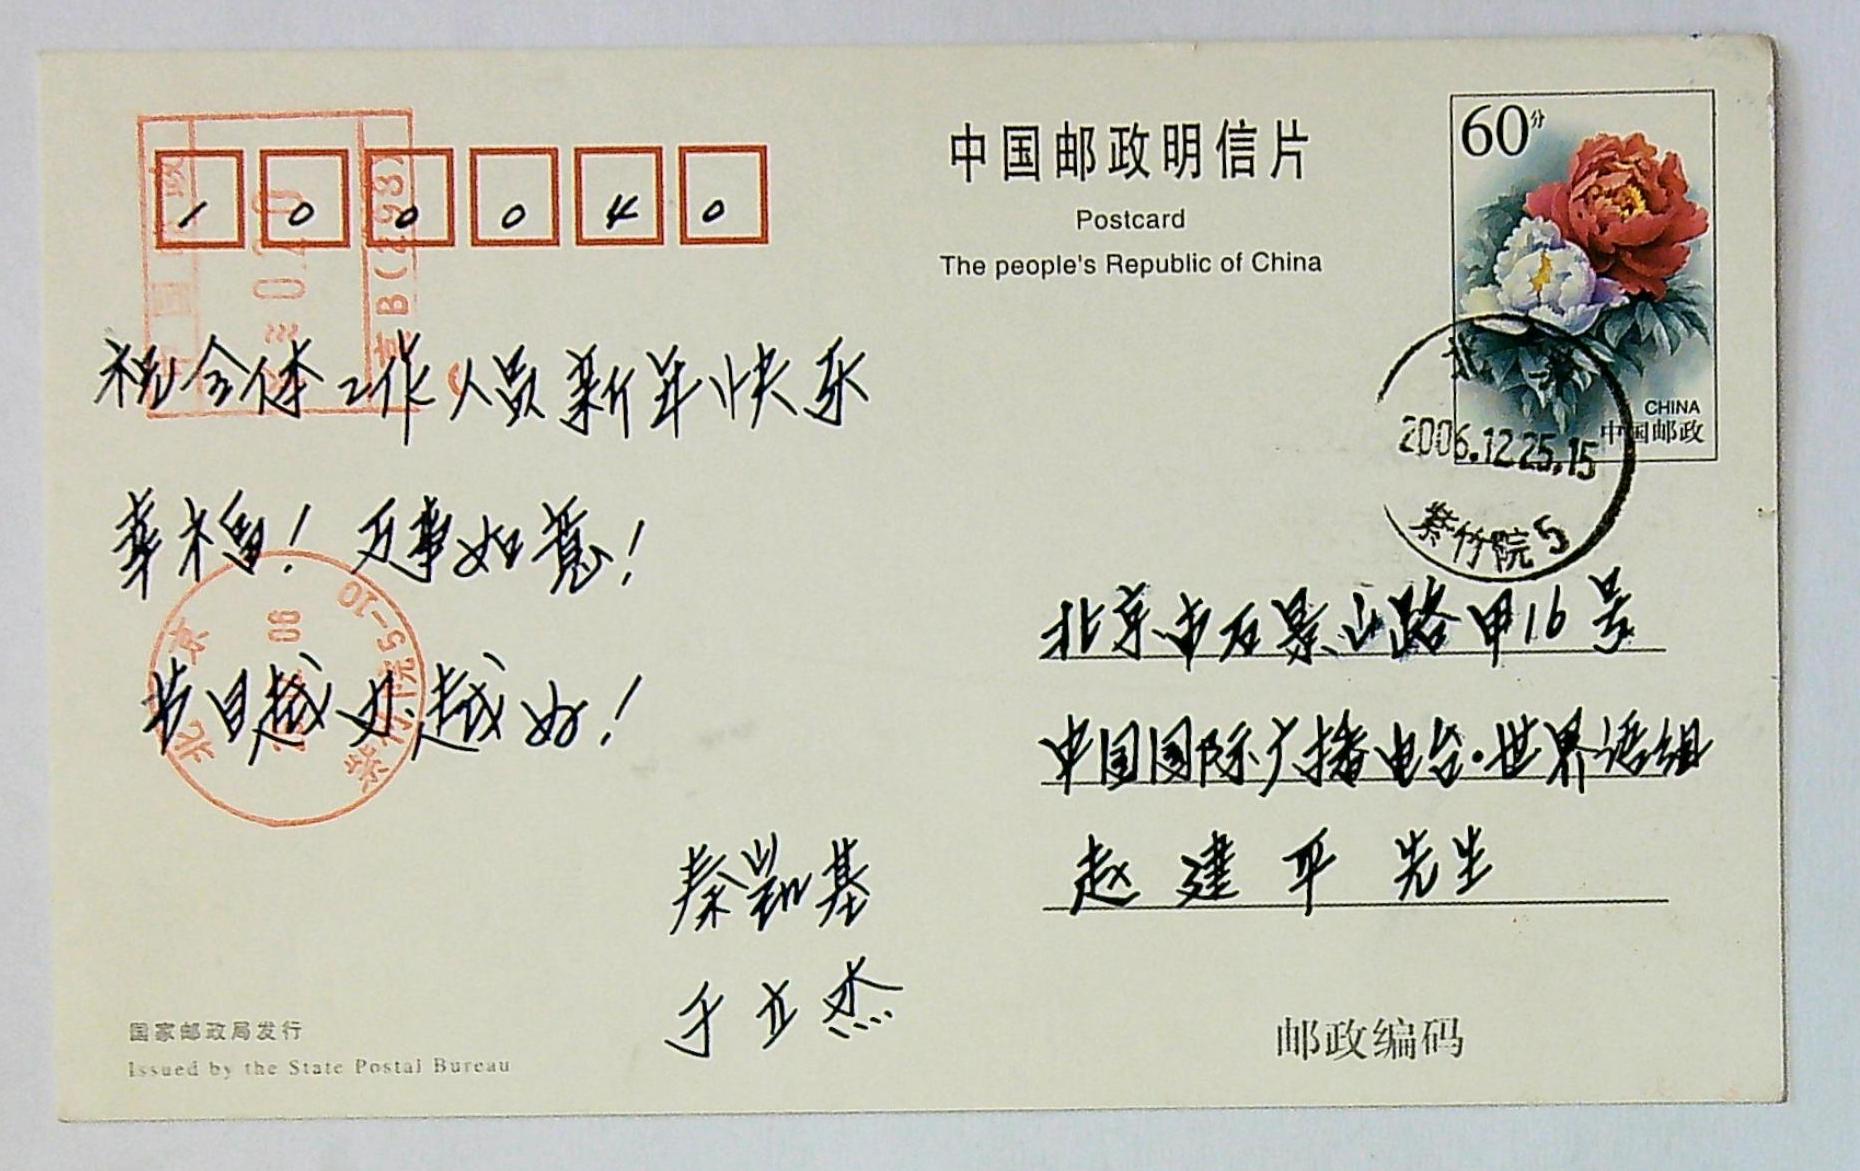 100040
中国邮政明信片
Postcard
The people's Republic of China
60分
CHINA
中国邮政
北京
2006.12.25.15
紫竹院5
祝全体工作人员新年快乐
幸福！万事如意！
节日越办越好！
秦凯基
于立杰
北京市石景山路甲16号
中国国际广播电台·世界语组
赵建平先生
邮政编码
国家邮政局发行
Issued by the State Postal Bureau
北京
紫竹院5-10